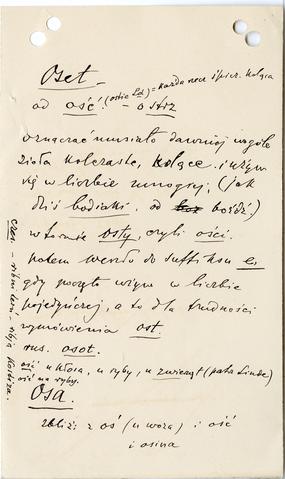 Oset –
(ostie Ld) = każda rzecz śpicz. koląca
od ość! – ostrz
oznaczać musiało dawniej wogóle
zioła kolczaste, kolące i używ
się w liczbie mnogiej, (jak
dziś bodiaki, od bość?)
w formie osty, czyli ości.
potem weszło do suffiksu et
gdy poczęto używ w liczbie
pojedyńczej, a to dla trudności
wymówienia ost.
rus. osot.
ość u kłosa, u ryby, u zwierząt (patrz Linde)
ość na ryby.
Osa.
zbliż: z oś (u woza) i ość
i osina
czes.